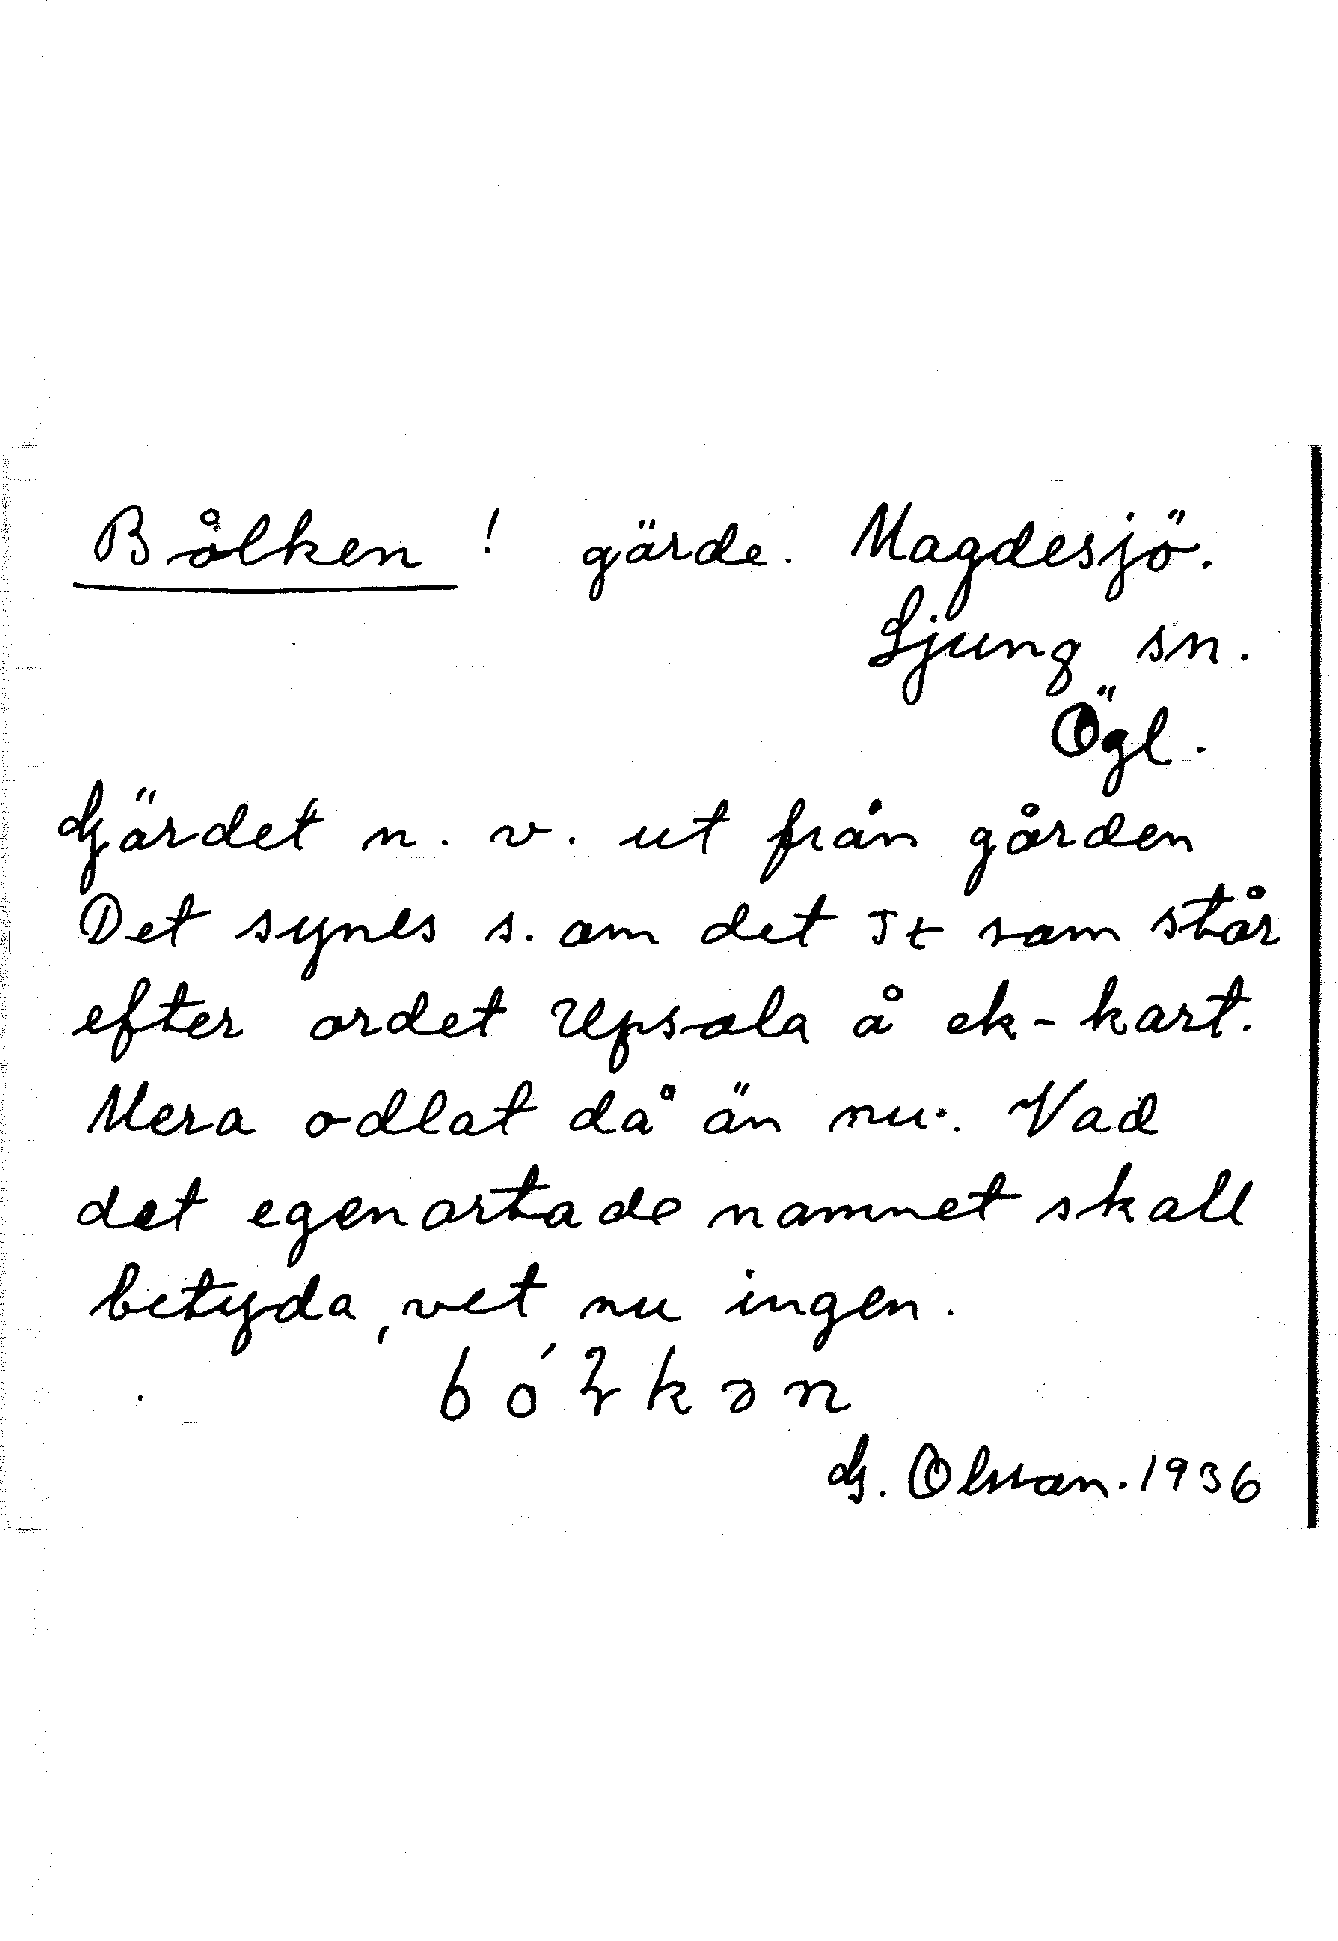 Bålken ! gärde. Magdesjö.
Ljung sn.
Ögl.
Gärdet n. v. ut från gården
Det synes s. om det Jt som står
efter ordet Upsala å ek-kart.
Mera odlat då än nu. Vad
det egenartade namnet skall
betyda, vet nu ingen.
G. Olsson. 1936